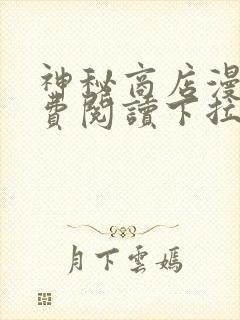 神秘商店漫
費閱讀下拉
月下雲嫣